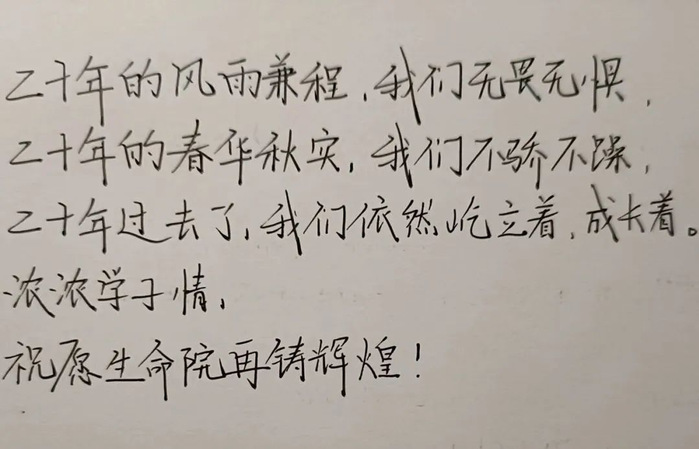 二十年的风雨兼程，我们无畏无惧，
二十年的春华秋实，我们不骄不躁，
二十年过去了，我们依然屹立着，成长着。
浓浓学子情，
祝愿生命院再铸辉煌！